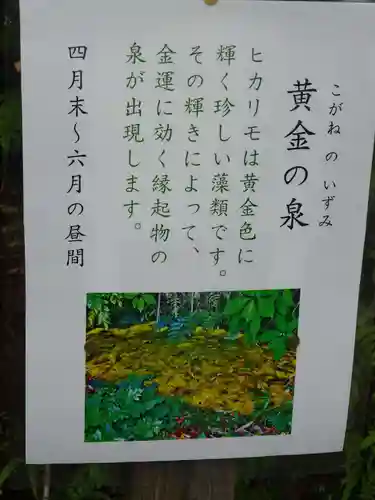 こがね の いずみ
黄金の泉
ヒカリモは黄金色に
輝く珍しい藻類です。
その輝きによって、
金運に効く縁起物の
泉が出現します。
四月末～六月の昼間